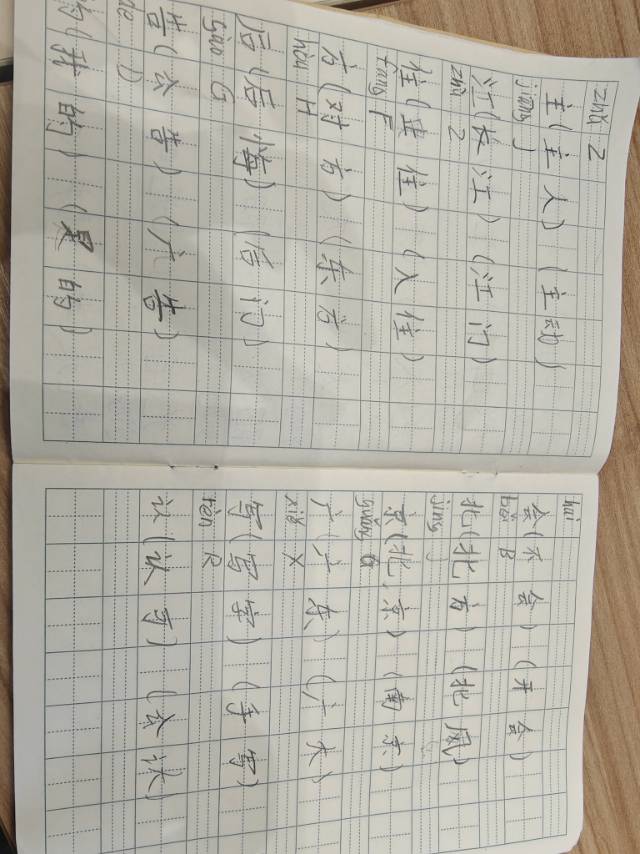 zhǔ Z
主(主人)(主动)
jiāng J
江(长江)(江门)
zhù Z
住( 住)(入住)
fāng F
方(对方)(东方)
hòu H
后(后悔)(后门)
gào G
告(公告)(广告)
de D
的( 的)(是的)
huì
会(不会)(开会)
běi B
北(北方)(北风)
jīng J
京(北京)(南京)
guǎng G
广(广东)(广大)
xiě X
写(写字)(手写)
rèn R
认(认 )( )